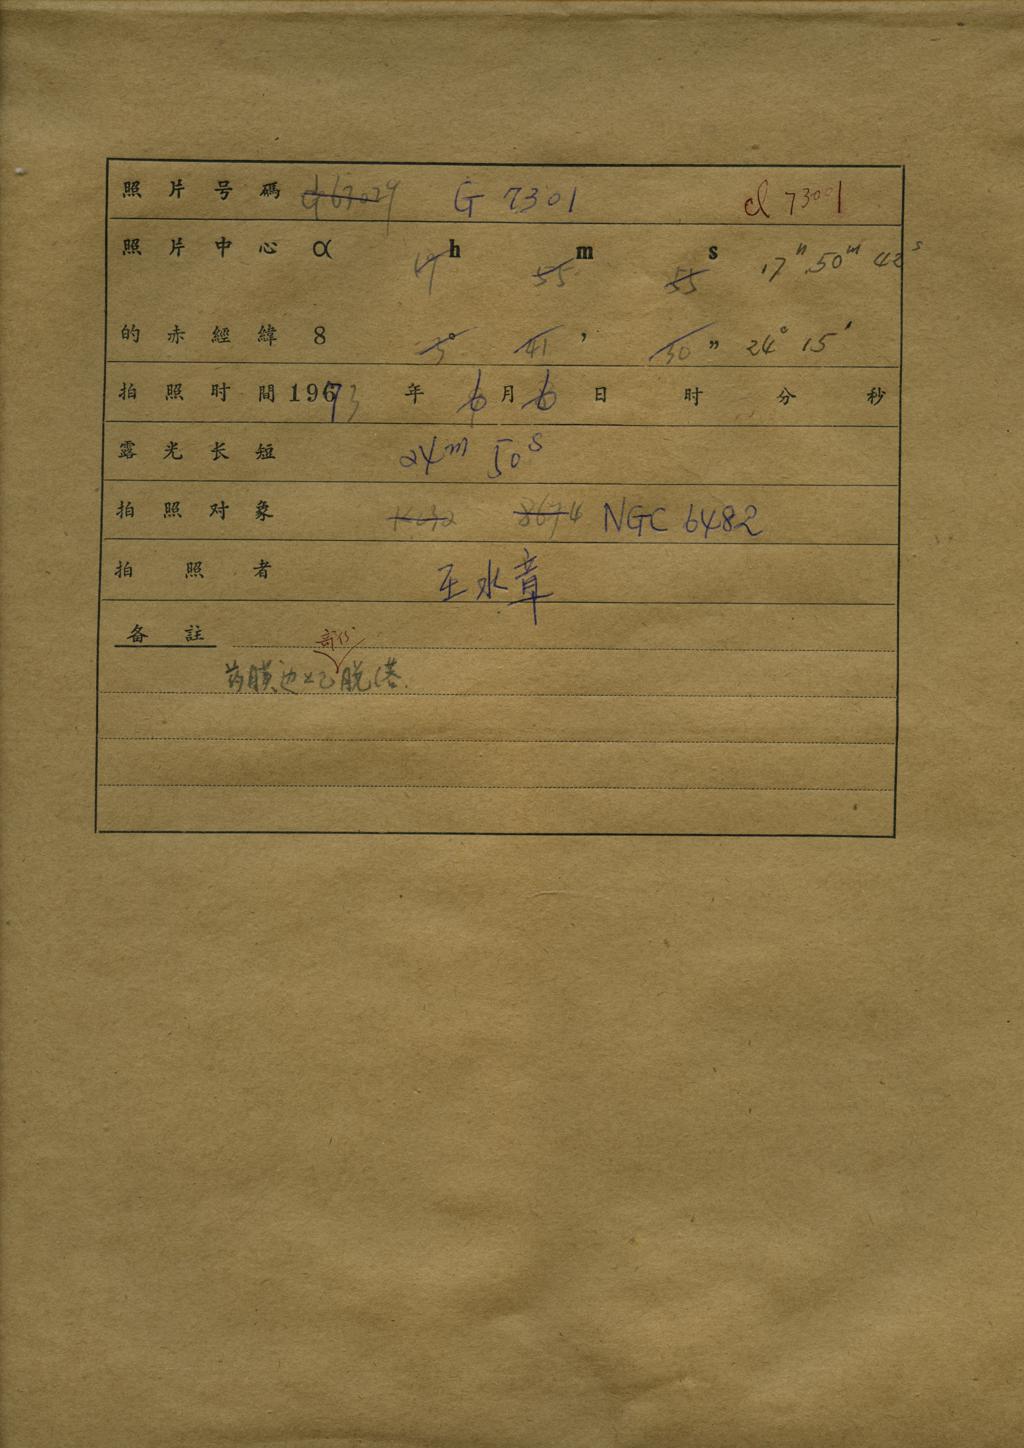 照片号碼 d67029 G 7301 d 7301
照片中心 α 17h 55m 55s 17h 50m 42s
的赤經緯 8 3° 41' 30" 24° 15'
拍照时間 1973 年 6 月 6 日 时 分 秒
露光长短 24m 50s
拍照对象 8674 NGC 6482
拍照者 王水章
备註
部份
药膜边上已脱落.